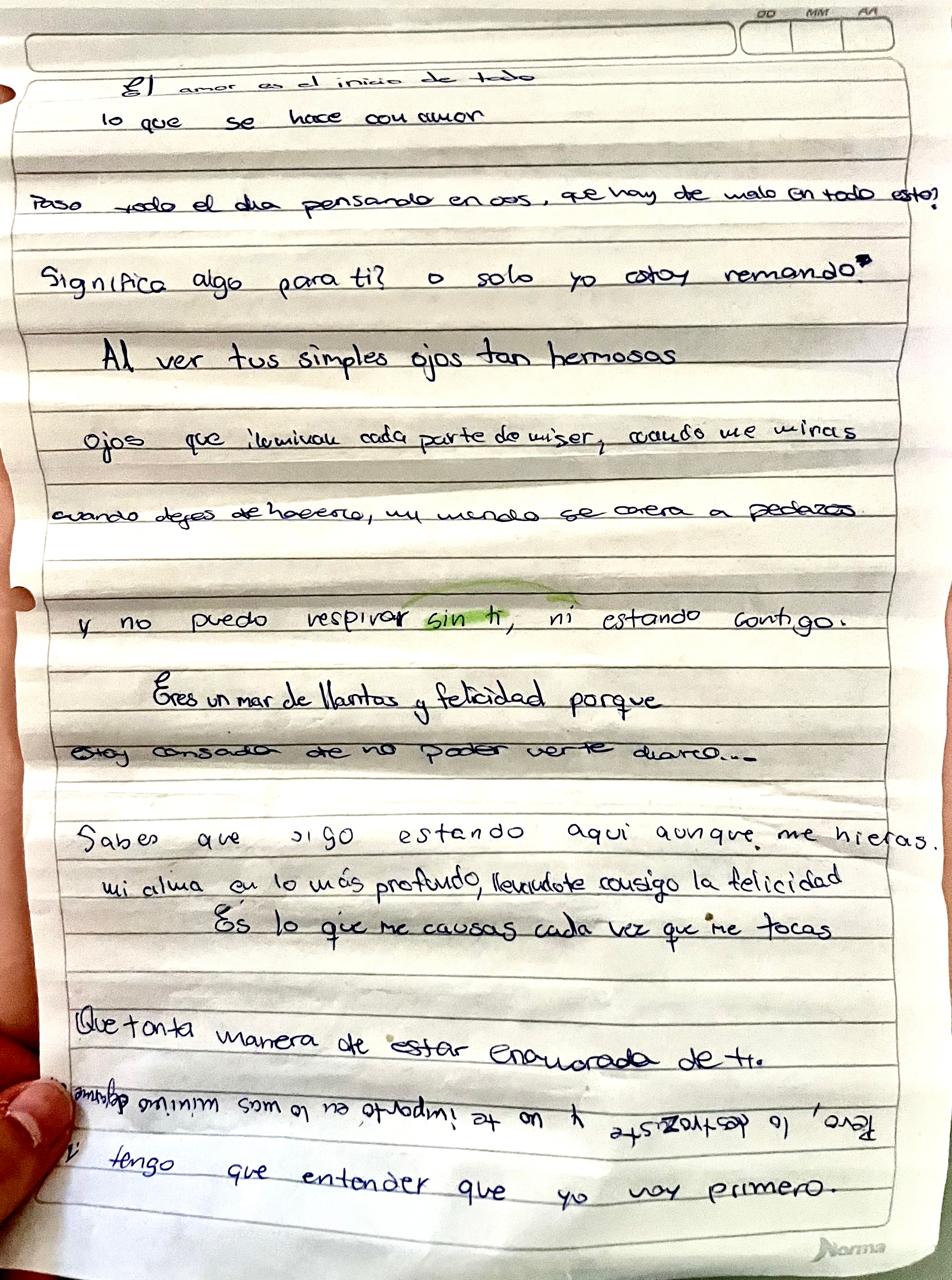 DD MM AA
El amor es el inicio de todo
lo que se hace con amor
Paso todo el dia pensando en vos, que hay de malo en todo esto?
Significa algo para ti? o solo yo estoy remando?
Al ver tus simples ojos tan hermosos
ojos que iluminan cada parte de mi ser, cuando me miras
cuando dejes de hacerlo, mi mundo se caera a pedazos
y no puedo respirar sin ti, ni estando contigo.
Eres un mar de llantos y felicidad porque
estoy cansada de no poder verte diario...
Sabes que sigo estando aqui aunque me hieras.
mi alma en lo más profundo, llevandote consigo la felicidad
Es lo que me causas cada vez que me tocas
Que tonta manera de estar enamorada de ti.
Pero, lo destroziste y no te importo en lo mas minimo dejarme
tengo que entender que yo voy primero.
Norma